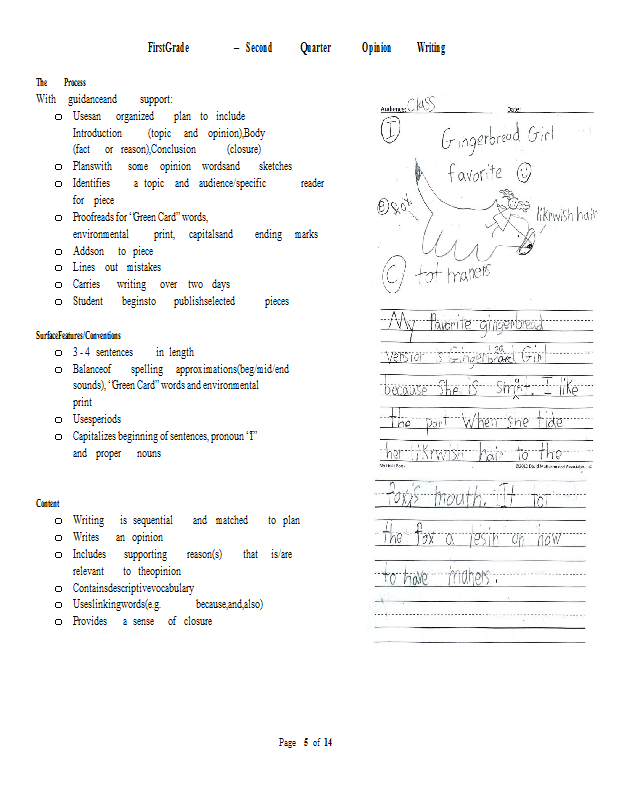 FirstGrade – Second Quarter Opinion Writing
The Process
With guidanceand support:
o Usesan organized plan to include
Introduction (topic and opinion),Body
(fact or reason),Conclusion (closure)
o Planswith some opinion wordsand sketches
o Identifies a topic and audience/specific reader
for piece
o Proofreads for “Green Card” words,
environmental print, capitalsand ending marks
o Addson to piece
o Lines out mistakes
o Carries writing over two days
o Student beginsto publishselected pieces
SurfaceFeatures/Conventions
o 3 - 4 sentences in length
o Balanceof spelling approximations(beg/mid/end
sounds), “Green Card” words and environmental
print
o Usesperiods
o Capitalizes beginning of sentences, pronoun “I”
and proper nouns
Content
o Writing is sequential and matched to plan
o Writes an opinion
o Includes supporting reason(s) that is/are
relevant to theopinion
o Containsdescriptivevocabulary
o Useslinkingwords(e.g. because,and,also)
o Provides a sense of closure
Audience: Class Date:
I
Gingerbread Girl
favorite
B
likrwish hair
C tot maners
My favorite gingerbread
version is Gingerbread Girl
because she is smart. I like
the part When she tide
her likrwish hair to the
fox's mouth. It tot
the fox a lesin on how
to have maners.
Page 5 of 14